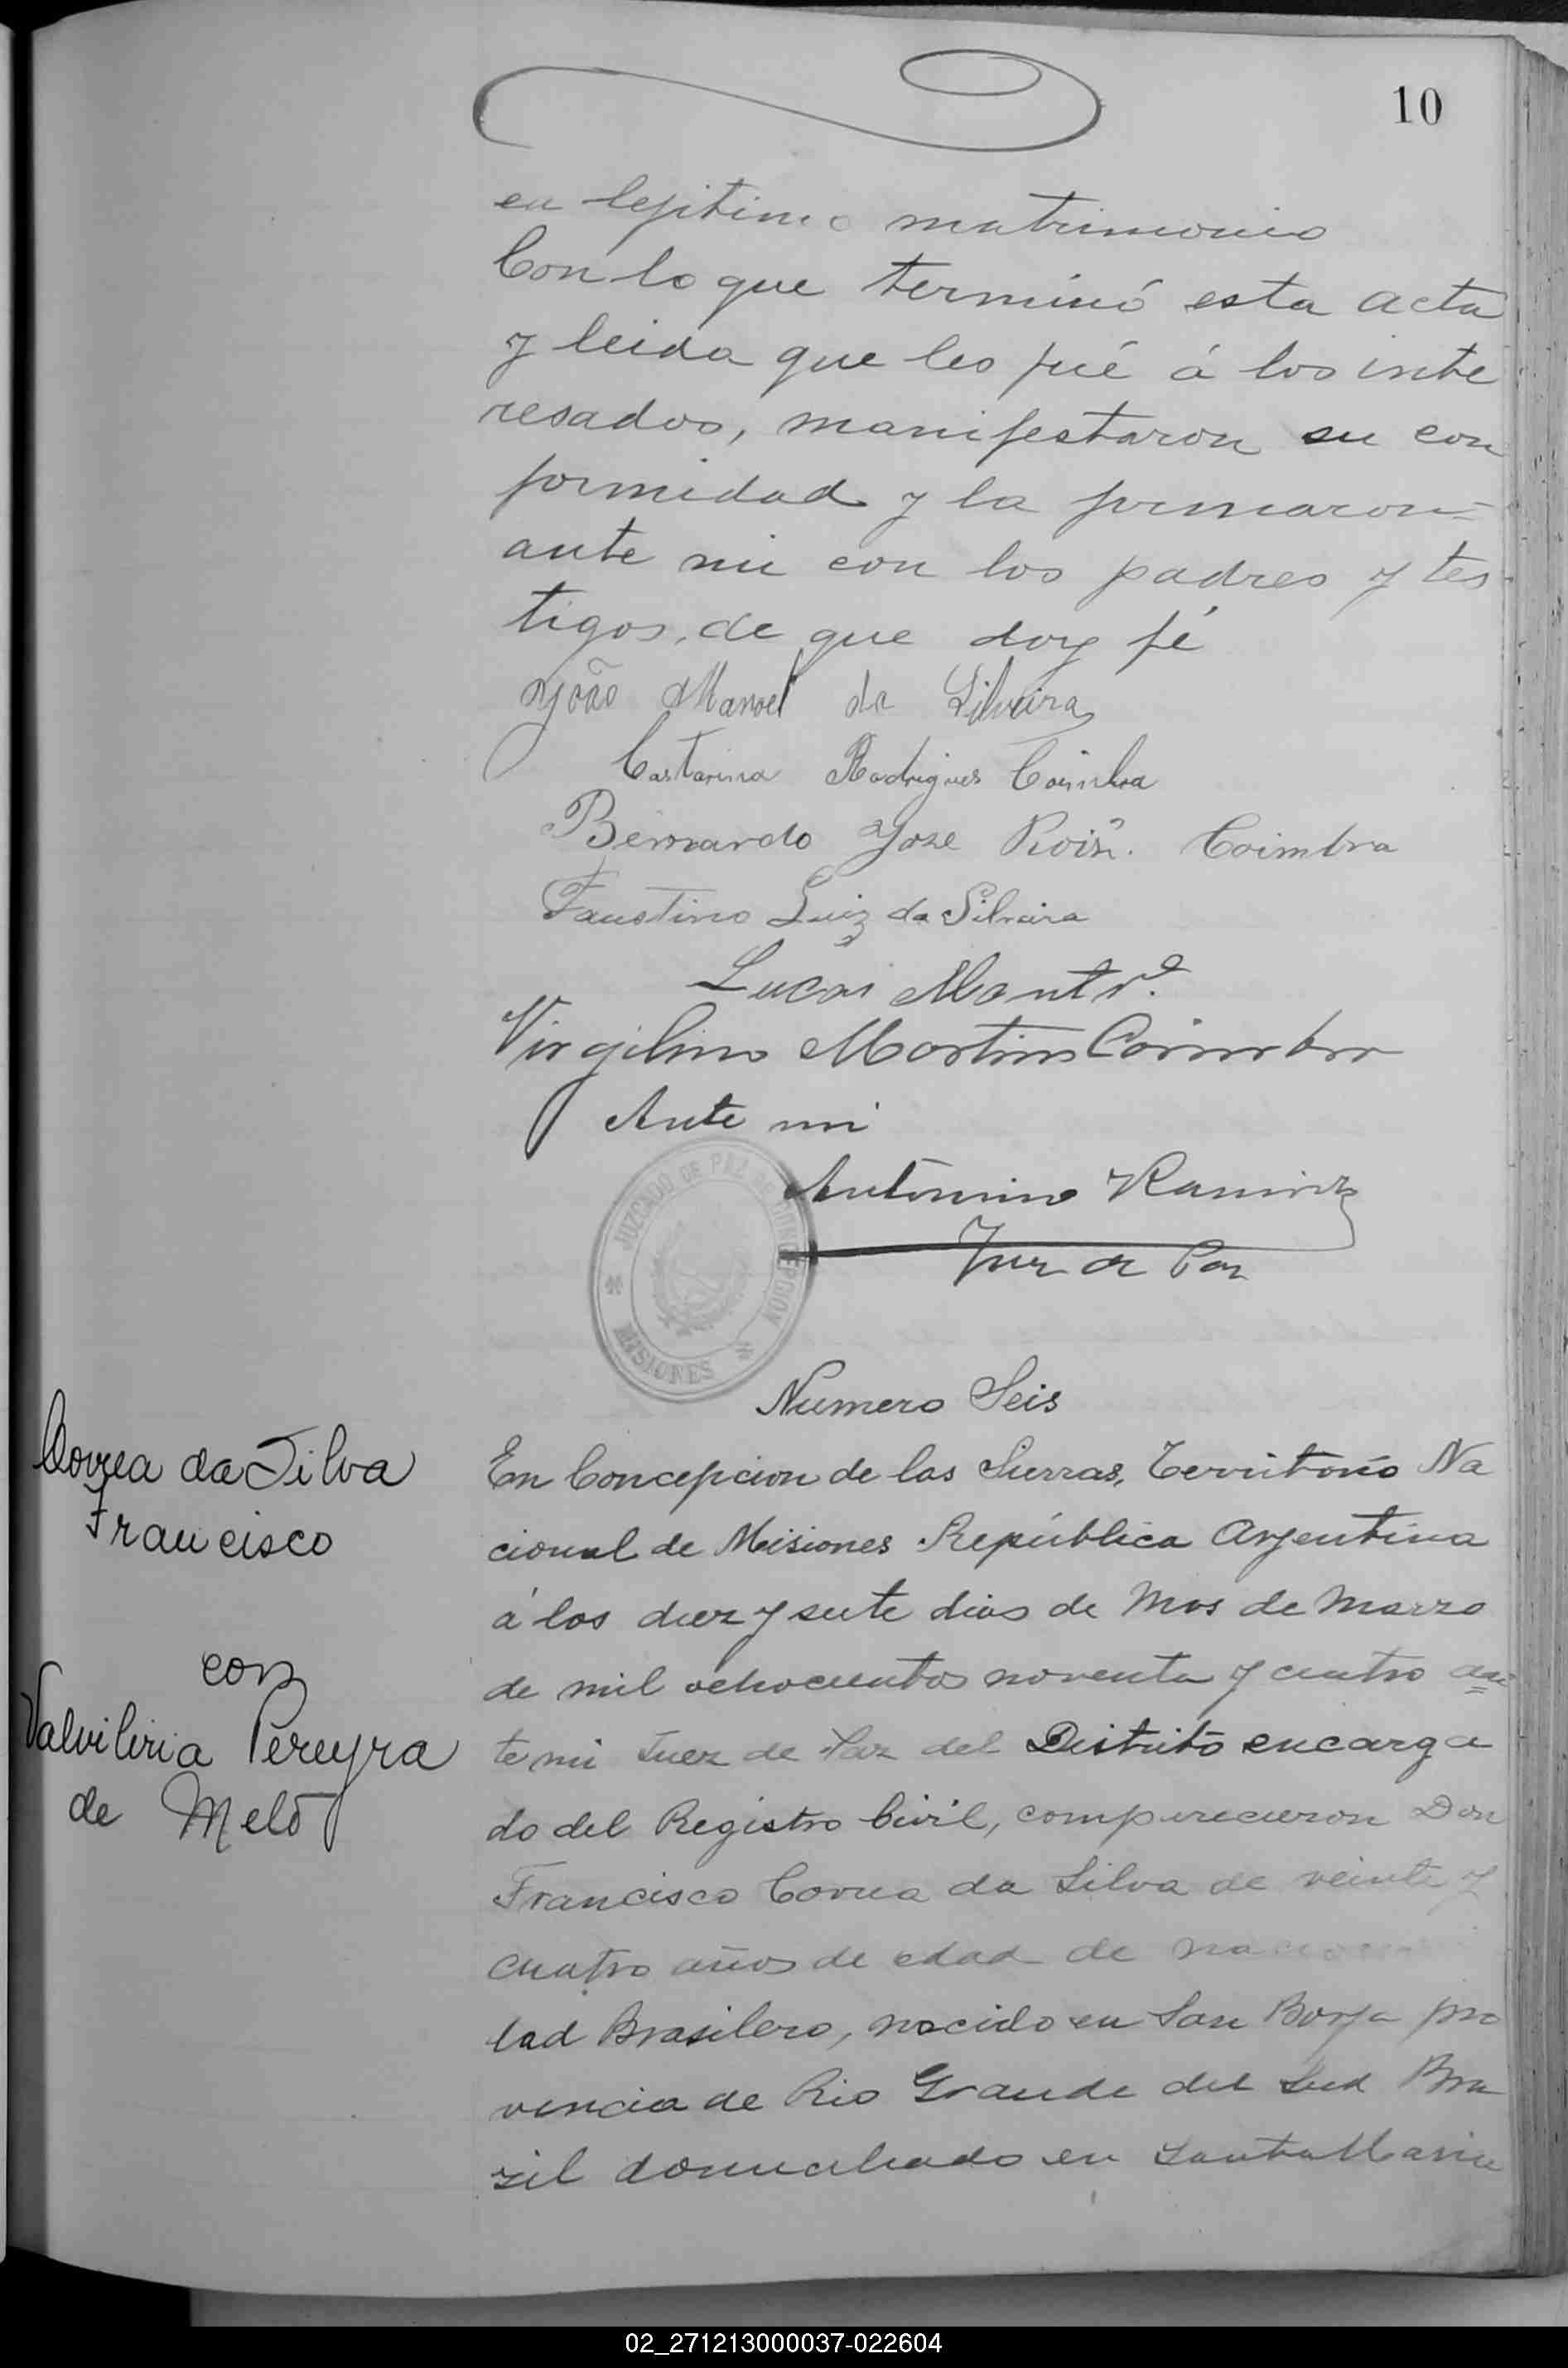 10
en lejitimo matrimonio
Con lo que terminó esta acta
y leida que les fué á los inte
resados, manifestaron su con
formidad y la firmaron=
ante mi con los padres y tes
tigos, de que doy fé
João Manoel da Silveira
Castarina Rodrigues Coimbra
Bernardo Joze Roiz. Coimbra
Faustino Luiz da Silveira
Lucas
Virgilino Martins Coimbra
Ante mi
Antonino Ramirez
Juez de Paz
JUZGADO DE PAZ DE CONCEPCION
MISIONES
Numero Seis
Correa da Silva
Francisco
con
Valviliria Pereyra
de Melo
En Concepcion de las Sierras, Territorio Na
cional de Misiones República Arjentina
á los diez y siete dias de Mes de Marzo
de mil ochocientos noventa y cuatro an=
te mi Juez de Paz del Distrito encarga
do del Registro Civil, comparecieron Don
Francisco Correa da Silva de veinte y
cuatro años de edad de naciona
lad Brasilero, nacido en San Borja pro
vincia de Rio Grande del Sud Bra
zil domiciliado en Santa Maria
02_271213000037-022604